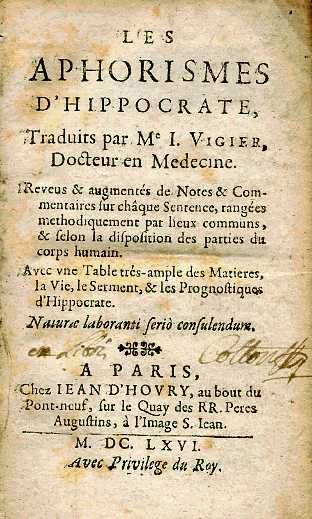 LES
APHORISMES
D'HIPPOCRATE,
Traduits par Me I. VIGIER,
Docteur en Medecine.
Reveus & augmentés de Notes & Com-
mentaires sur châque Sentence, rangées
methodiquement par lieux communs,
& selon la disposition des parties du
corps humain.
Avec vne Table trés-ample des Matieres,
la Vie, le Serment, & les Prognostiques
d'Hippocrate.
Naturæ laboranti seriò consulendum.
A PARIS,
Chez IEAN D'HOVRY, au bout du
Pont-neuf, sur le Quay des RR. Peres
Augustins, à l'Image S. Iean.
M. DC. LXVI.
Avec Privilege du Roy.